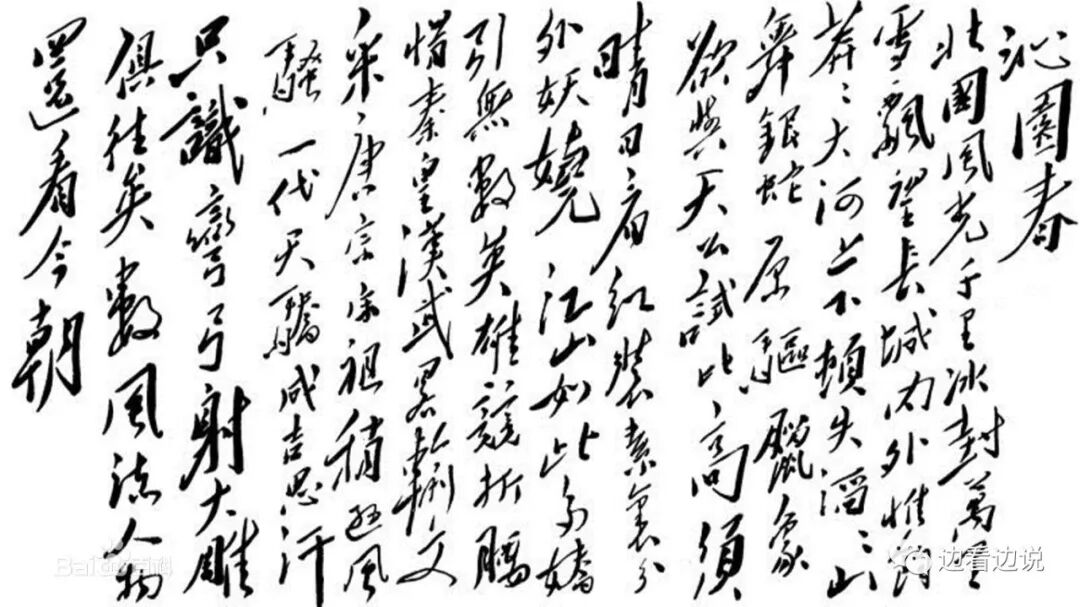 沁園春
北國風光千里冰封萬里
雪飄望長城內外惟餘
莽〻大河上下頓失滔〻山
舞銀蛇原驅臘象
欲與天公試比高須
晴日看紅裝素裹分
外妖嬈江山如此多嬌
引無數英雄競折腰
惜秦皇漢武略輸文
采唐宗宋祖稍遜風
騷一代天驕成吉思汗
只識彎弓射大雕
俱往矣數風流人物
還看今朝
Baidu百科
边看边说